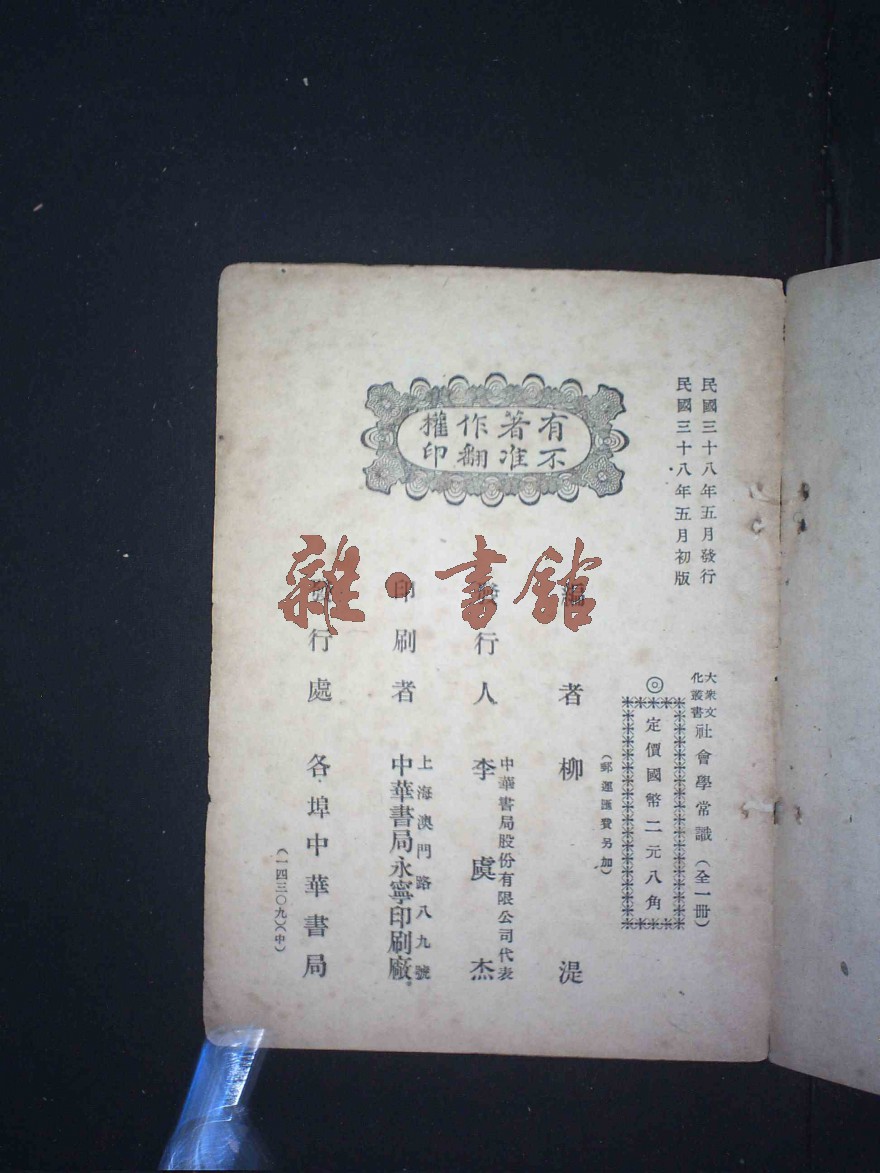 民國三十八年五月發行
民國三十八年五月初版
大衆文
化叢書
社會學常識（全一冊）
◎
定價國幣二元八角
（郵運匯費另加）
有著作權
不准翻印
編者 柳湜
發行人 李虞杰
中華書局股份有限公司代表
印刷者 中華書局永寧印刷廠
上海澳門路八九號
發行處 各埠中華書局
（一四三〇九）（中）
雜·書館